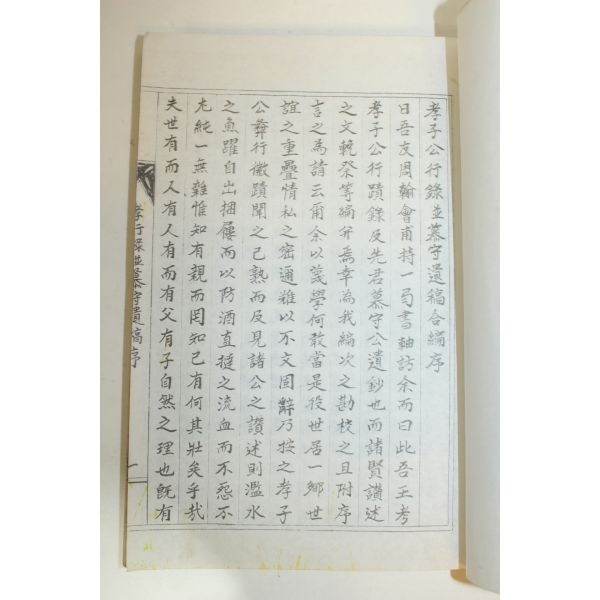 孝子公行錄並慕守遺稿合編序
日吾友周翰會甫持一局書軸訪余而曰此吾王考
孝子公行蹟錄及先君慕守公遺鈔也而諸賢讚述
之文輓祭等編幷焉幸為我編次之勘校之且附序
言之為請云爾余以蔑學何敢當是役世居一鄉世
誼之重疊情私之密邇難以不文固辭乃按之孝子
公彜行徽蹟聞之已熟而及見諸公之讚述則濫水
之魚躍自出捆屨而以防酒直撻之流血而不怨不
尤純一無雜惟知有親而罔知己有何其壯矣乎哉
夫世有而人有人有而有父有子自然之理也旣有
孝行錄並慕守遺稿序
一